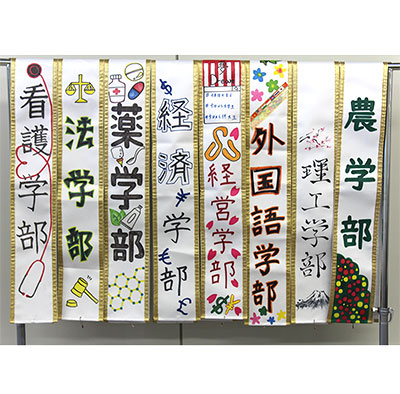 看護学部
法学部
薬学部
経済学部
経営学部
外国語学部
理工学部
農学部